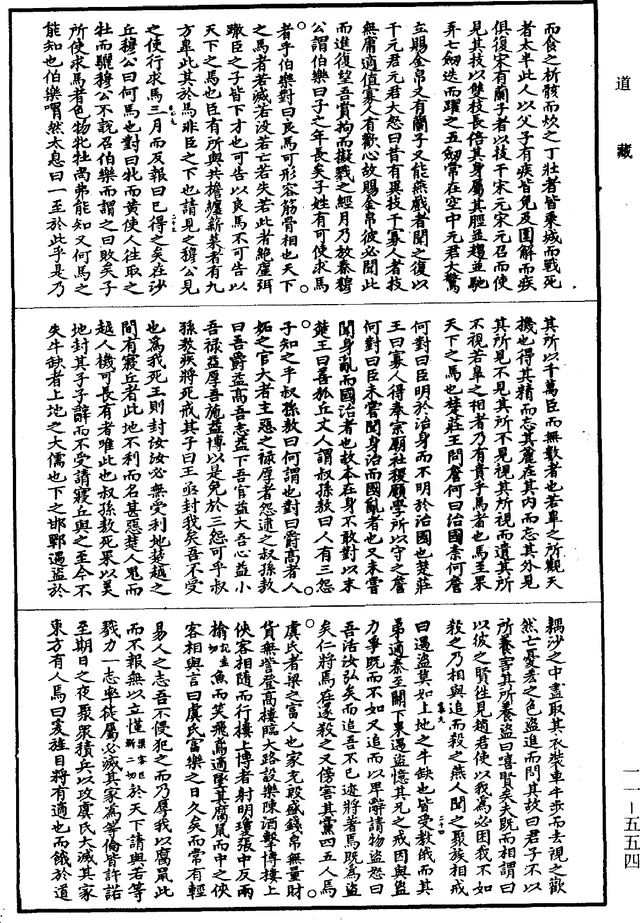 道藏
而食之析骸而炊之丁壯者皆乘城而戰死
者太半此人以父子有疾皆免及圍解而疾
俱復宋有蘭子者以技干宋元宋元召而使
見其技以雙枝長倍其身屬其脛並趨並馳
弄七劒迭而躍之五劒常在空中元君大驚
立賜金帛又有蘭子又能燕戲者聞之復以
干元君元君大怒曰昔有異技干寡人者技
無庸適值寡人有歡心故賜金帛彼必聞此
而進復望吾賞拘而擬戮之經月乃放秦穆
公謂伯樂曰子之年長矣子姓有可使求馬
者乎伯樂對曰良馬可形容筋骨相也天下
之馬者若滅若没若亡若失若此者絕塵弭
臣之子皆下才也可告以良馬不可告以
天下之馬也臣有所與共擔纆薪菜者有九
方臯此其於馬非臣之下也請見之穆公見
卷九 二十三
之使行求馬三月而反報曰已得之矣在沙
丘穆公曰何馬也對曰牝而黃使人往取之
牡而驪穆公不說召伯樂而謂之曰敗矣子
所使求馬者色物牝牡尚弗能知又何馬之
能知也伯樂喟然太息曰一至於此乎是乃
其所以千萬臣而無數者也若臯之所觀天
機也得其精而忘其麄在其內而忘其外見
其所見不見其所不見視其所視而遺其所
不視若臯之相者乃有貴乎馬者也馬至果
天下之馬也楚莊王問詹何曰治國柰何詹
何對曰臣明於治身而不明於治國也楚莊
王曰寡人得奉宗廟社稷願學所以守之詹
何對曰臣未甞聞身治而國亂者也又未甞
聞身亂而國治者也故本在身不敢對以末
楚王曰善狐丘丈人謂叔孫敖曰人有三怨
子知之乎叔孫敖曰何謂也對曰爵高者人
妬之官大者主惡之祿厚者怨逮之叔孫敖
曰吾爵益高吾志益下吾官益大吾心益小
吾祿益厚吾施益博以是免於三怨可乎叔
孫敖疾將死戒其子曰王亟封我矣吾不受
也為我死王則封汝汝必無受利地楚越之
間有寢丘者此地不利而名甚惡楚人鬼而
越人機可長有者唯此也叔孫敖死果以美
地封其子子辭而不受請寢丘與之至今不
失牛缺者上地之大儒也下之邯鄲遇盜於
耦沙之中盡取其衣裝車牛步而去視之歡
然亡憂恡之色盜追而問其故曰君子不以
所養害其所養盜曰嘻賢矣夫既而相謂曰
以彼之賢往見趙君使以我為必困我不如
殺之乃相與追而殺之燕人聞之聚族相戒
卷九 二十四
曰遇盜莫如上地之牛缺也皆受教俄而其
弟適秦至關下果遇盜憶其兄之戒因與盜
力爭既而不如又追而以卑辭請物盜怒曰
吾活汝弘矣而追吾不已迹將著焉既為盜
矣仁將焉在遂殺之又傍害其黨四五人焉
虞氏者梁之富人也家充殷盛錢帛無量財
貨無訾登高樓臨大路設樂陳酒擊博樓上
俠客相隨而行樓上博者射明瓊張中反兩
㩉魚而笑飛鳶適墜其腐鼠而中之俠
客相與言曰虞氏富樂之日久矣而常有輕
易人之志吾不侵犯之而乃辱我以腐鼠此
而不報無以立慬於天下請與若等
戮力一志率徒屬必滅其家為等倫皆許諾
至期日之夜聚衆積兵以攻虞氏大滅其家
東方有人焉曰爰旌目將有適也而餓於道
一一—五五四